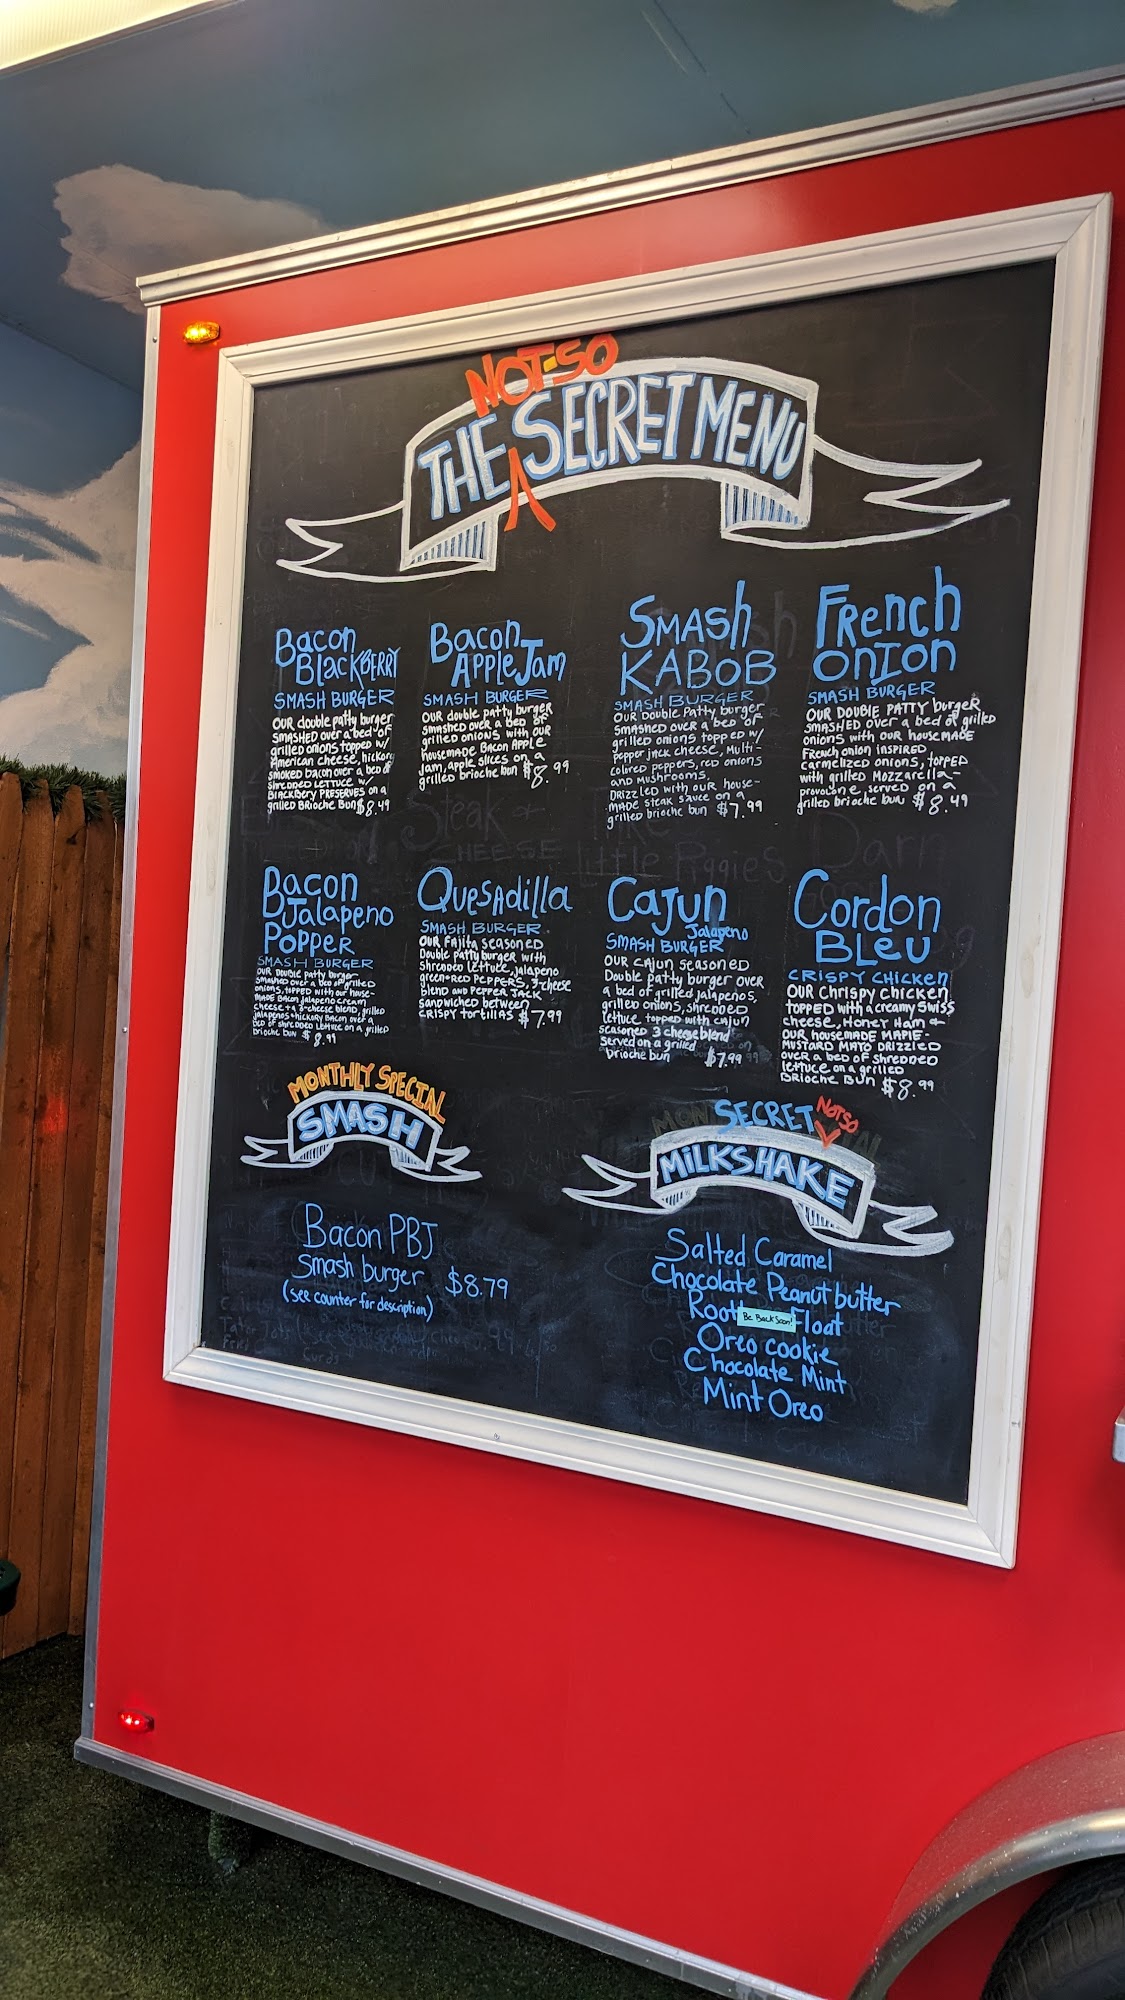 NOT-SO
THE SECRET MENU
Bacon
BlackBERRY
SMASH BURGER
OUR double patty burger
SMASHED over a bed of
grilled onions topped w/
American cheese, hickory
smoked bacon over a bed of
shredded lettuce w/
BlackBery PRESERVES on a
grilled Brioche Bun $8.49
Bacon
Apple Jam
SMASH BURGER
OUR double patty burger
smashed over a bed of
grilled onions with our
housemade Bacon Apple
Jam, apple slices on a
grilled brioche bun $8.99
Smash
KABOB
SMASH BURGER
OUR Double patty burger
smashed over a bed of
grilled onions topped w/
pepper jack cheese, Multi-
colored peppers, red onions
and mushrooms.
Drizzled with our house-
made steak sauce on a
grilled brioche bun $7.99
French
onIon
SMASH BURGER
OUR DOUBLE PATTY burgeR
smashed over a bed of grilled
onions with our housemade
French onion inspired
carmelized onions, topped
with grilled Mozzarella-
provolone, served on a
grilled brioche bun $8.49
Bacon
Jalapeno
Popper
SMASH BURGER
OUR Double patty burger
smashed over a bed of grilled
onions, topped with our house-
made Bacon jalapeno cream
cheese + a 3-cheese blend, grilled
jalapenos + hickory Bacon over a
bed of shredded lettuce on a grilled
brioche bun $8.99
Quesadilla
SMASH BURGER
OUR Fajita seasoned
Double patty burger with
shredded lettuce, jalapeno
green + Red Peppers, 3-cheese
blend and Pepper Jack
sandwiched between
crispy tortillas $7.99
Cajun
Jalapeno
SMASH BURGER
OUR cajun seasoned
Double patty burger over
a bed of grilled jalapenos,
grilled onions, shredded
lettuce topped with cajun
seasoned 3 cheese blend
served on a grilled
brioche bun $7.99
Cordon
Bleu
CRISPY CHICKEN
OUR Chrispy chicken
topped with a creamy Swiss
cheese, Honey Ham +
our housemade maple-
mustard mayo drizzled
over a bed of shredded
lettuce on a grilled
Brioche Bun $8.99
MONTHLY SPECIAL
SMASH
Bacon PBJ
Smash burger $8.79
(see counter for description)
SECRET NOT SO
MILKSHAKE
Salted Caramel
Chocolate Peanut butter
Root Be Back Soon! Float
Oreo cookie
Chocolate Mint
Mint Oreo